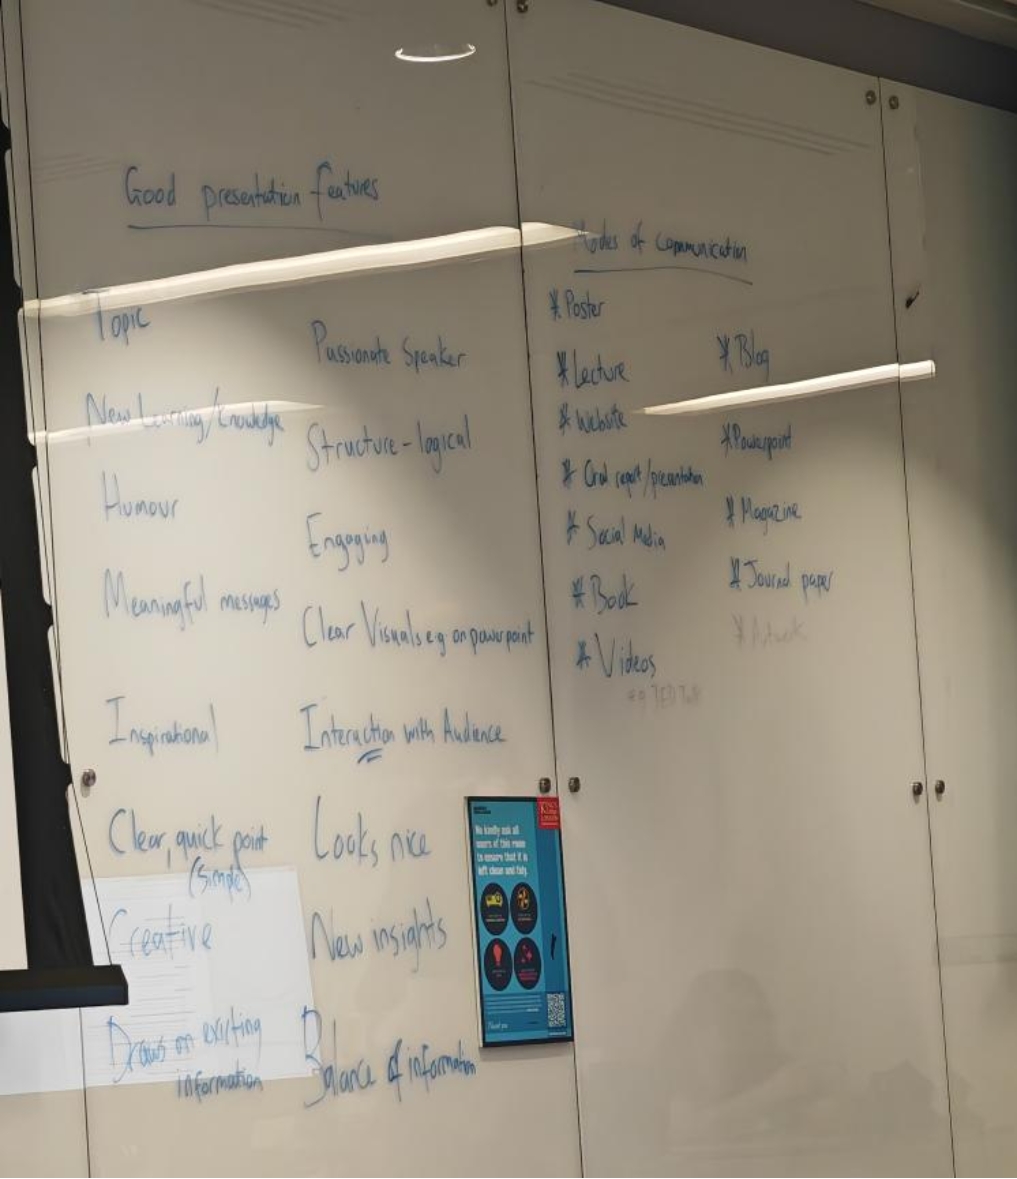 Good presentation features
Topic
New Learning/knowledge
Humour
Meaningful messages
Inspirational
Clear, quick point
(simple)
Creative
Draws on existing
information
Passionate Speaker
Structure - logical
Engaging
Clear Visuals e.g on powerpoint
Interaction with Audience
Looks nice
New insights
Balance of information
Modes of communication
* Poster
* Lecture
* Website
* Oral report/presentation
* Social Media
* Book
* Videos
eg TED Talk
* Blog
* Powerpoint
* Magazine
* Journal paper
* Artwork
KING'S
College
LONDON
We kindly ask all
users of this room
to ensure that it is
left clean and tidy.
Thank you